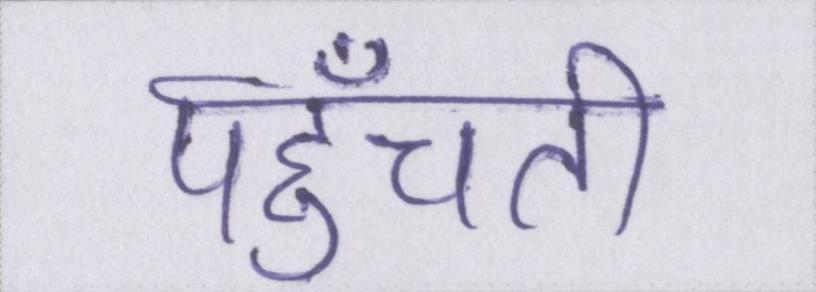 पहुँचती